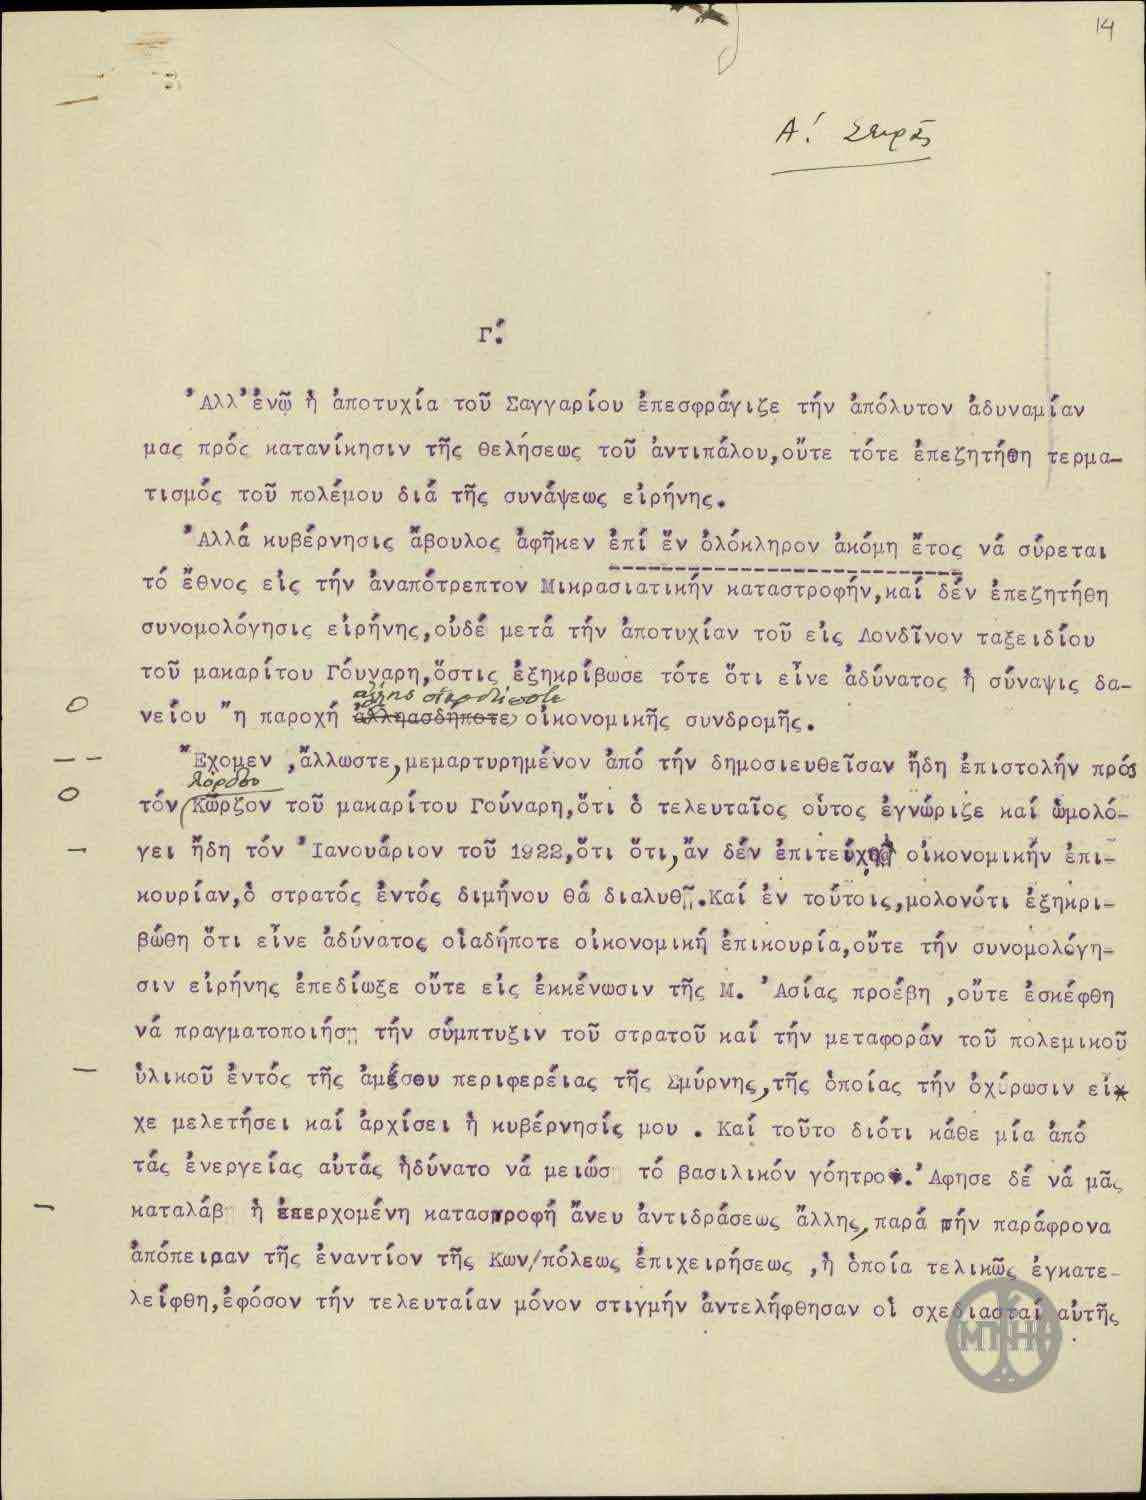 14
Α΄. Σειρᾶς
Γ΄.
Ἀλλ' ἐνῷ ἡ ἀποτυχία τοῦ Σαγγαρίου ἐπεσφράγιζε τήν ἀπόλυτον ἀδυναμίαν
μας πρός κατανίκησιν τῆς θελήσεως τοῦ ἀντιπάλου,οὔτε τότε ἐπεζητήθη τερμα-
τισμός τοῦ πολέμου διά τῆς συνάψεως εἰρήνης.
Ἀλλά κυβέρνησις ἄβουλος ἀφῆκεν ἐπί ἕν ὁλόκληρον ἀκόμη ἔτος νά σύρεται
τό ἔθνος εἰς τήν ἀναπότρεπτον Μικρασιατικήν καταστροφήν,καί δέν ἐπεζητήθη
συνομολόγησις εἰρήνης,οὐδέ μετά τήν ἀποτυχίαν τοῦ εἰς Λονδῖνον ταξειδίου
τοῦ μακαρίτου Γούναρη,ὅστις ἐξηκρίβωσε τότε ὅτι εἶνε ἀδύνατος ἡ σύναψις δα-
ἄλλης οἱασδήποτε
νείου ἤ παροχή ἀλληασδήποτε οἰκονομικῆς συνδρομῆς.
Ἔχομεν ,ἄλλωστε,μεμαρτυρημένον ἀπό τήν δημοσιευθεῖσαν ἤδη ἐπιστολήν πρός
Λόρδον
τόν Κῶρζον τοῦ μακαρίτου Γούναρη,ὅτι ὁ τελευταῖος οὗτος ἐγνώριζε καί ὡμολό-
γει ἤδη τόν Ἰανουάριον τοῦ 1922,ὅτι ὅτι,ἄν δέν ἐπιτεύχῃ οἰκονομικήν ἐπι-
κουρίαν,ὁ στρατός ἐντός διμήνου θά διαλυθῇ.Καί ἐν τούτοις,μολονότι ἐξηκρι-
βώθη ὅτι εἶνε ἀδύνατος οἱαδήποτε οἰκονομική ἐπικουρία,οὔτε τήν συνομολόγη-
σιν εἰρήνης ἐπεδίωξε οὔτε εἰς ἐκκένωσιν τῆς Μ. Ἀσίας προέβη ,οὔτε ἐσκέφθη
νά πραγματοποιήσῃ τήν σύμπτυξιν τοῦ στρατοῦ καί τήν μεταφοράν τοῦ πολεμικοῦ
ὑλικοῦ ἐντός τῆς ἀμέσου περιφερείας τῆς Σμύρνης,τῆς ὁποίας τήν ὀχύρωσιν εἶ
χε μελετήσει καί ἀρχίσει ἡ κυβέρνησίς μου . Καί τοῦτο διότι κάθε μία ἀπό
τάς ἐνεργείας αὐτάς ἠδύνατο νά μειώσῃ τό βασιλικόν γόητρο. Ἄφησε δέ νά μᾶς
καταλάβῃ ἡ ἐπερχομένη καταστροφή ἄνευ ἀντιδράσεως ἄλλης,παρά τήν παράφρονα
ἀπόπειραν τῆς ἐναντίον τῆς Κων/πόλεως ἐπιχειρήσεως ,ἡ ὁποία τελικῶς ἐγκατε-
λείφθη,ἐφόσον τήν τελευταίαν μόνον στιγμήν ἀντελήφθησαν οἱ σχεδιασταί αὐτῆς